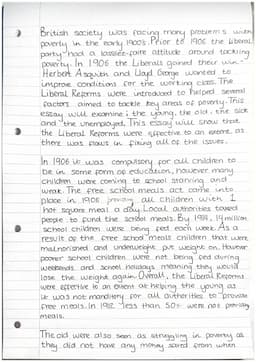 British society was facing many problems with
poverty in the early 1900's. Prior to 1906 the Liberal
party had a laissez-faire attitude around tackling
poverty. In 1906 the Liberals gained their win
Herbert Asquith and Lloyd George wanted to
improve conditions for the working class. The
Liberal Reforms were introduced to helped several
factors aimed to tackle key areas of poverty. This
essay will examine: the young, the old, the sick
and the unemployed. This essay will show that
the Liberal Reforms were effective to an extent as
there was flaws in fixing all of the issues.
In 1906 it was compulsory for all children to
be in some form of education, however many
children were coming to school starving and
weak. The free school meals act came into
place in 1906 providing all children with 1
hot square meal a day. Local authorities taxed
people to fund the school meals. By 1914, 14 million
school children were being fed each week. As a
result of the free school meals children that were
malnorished and underweight put weight on. However
poorer school children were not being fed during
weekends and school holidays meaning they would
lose the weight again. Overall, the Liberal Reforms
were effective to an extent at helping the young as
it was not mandatory for all authorities to provide
free meals. In 1912 less than 50% were not providing
meals.
The old were also seen as struggling in poverty as
they did not have any money saved from when